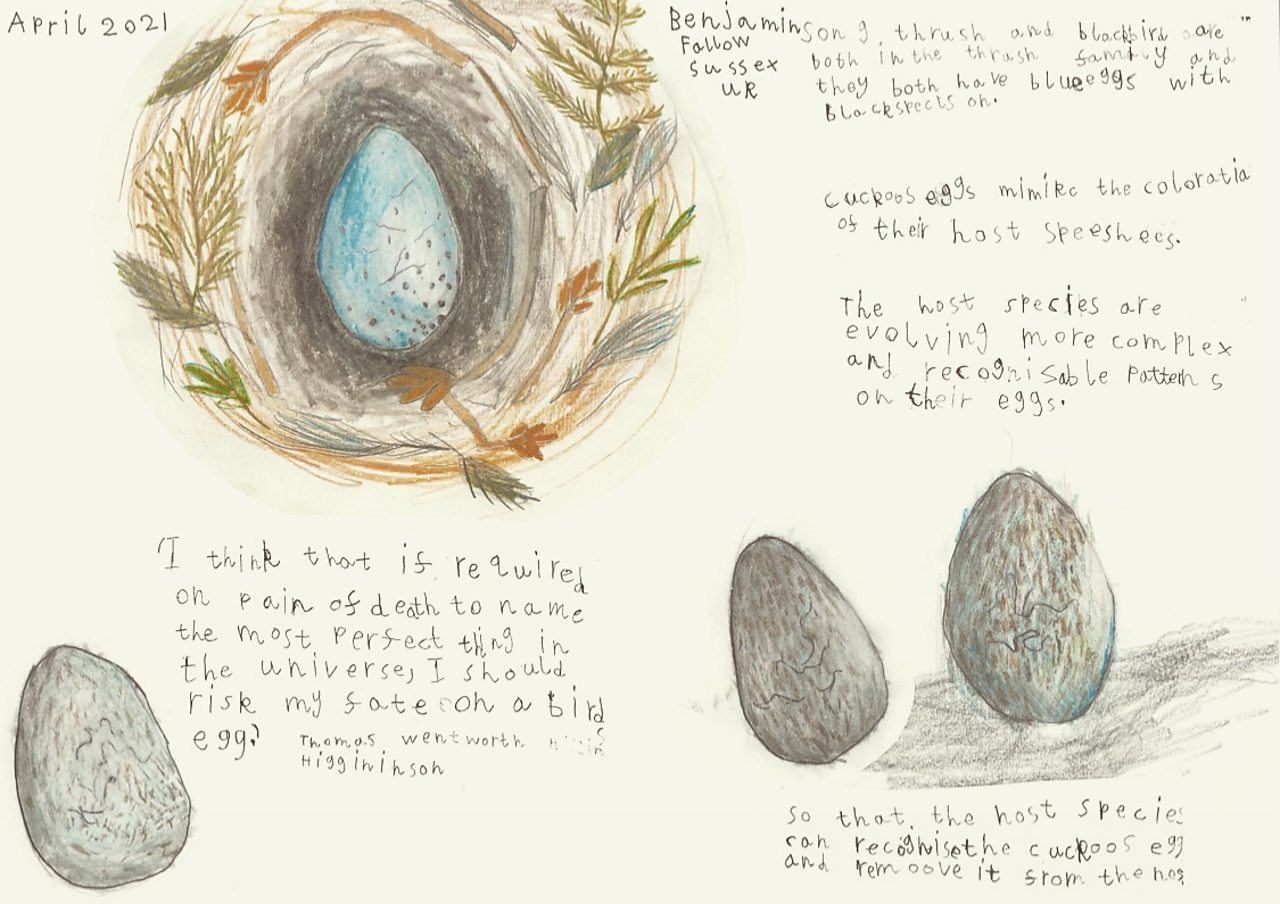 April 2021
Benjamin
Fallow
Sussex
UK
Song thrush and blackbird are
both in the thrush family and
they both have blue eggs with
black specls on.
cuckoos eggs mimikc the coloratia
of their host speeshees.
The host species are
evolving more complex
and recognisable patterns
on their eggs.
'I think that if required
on pain of death to name
the most perfect thing in
the universe, I should
risk my fate on a bird
egg'
Thomas wentworth
Higgininson
so that the host species
can recognise the cuckoos egg
and remoove it from the nes